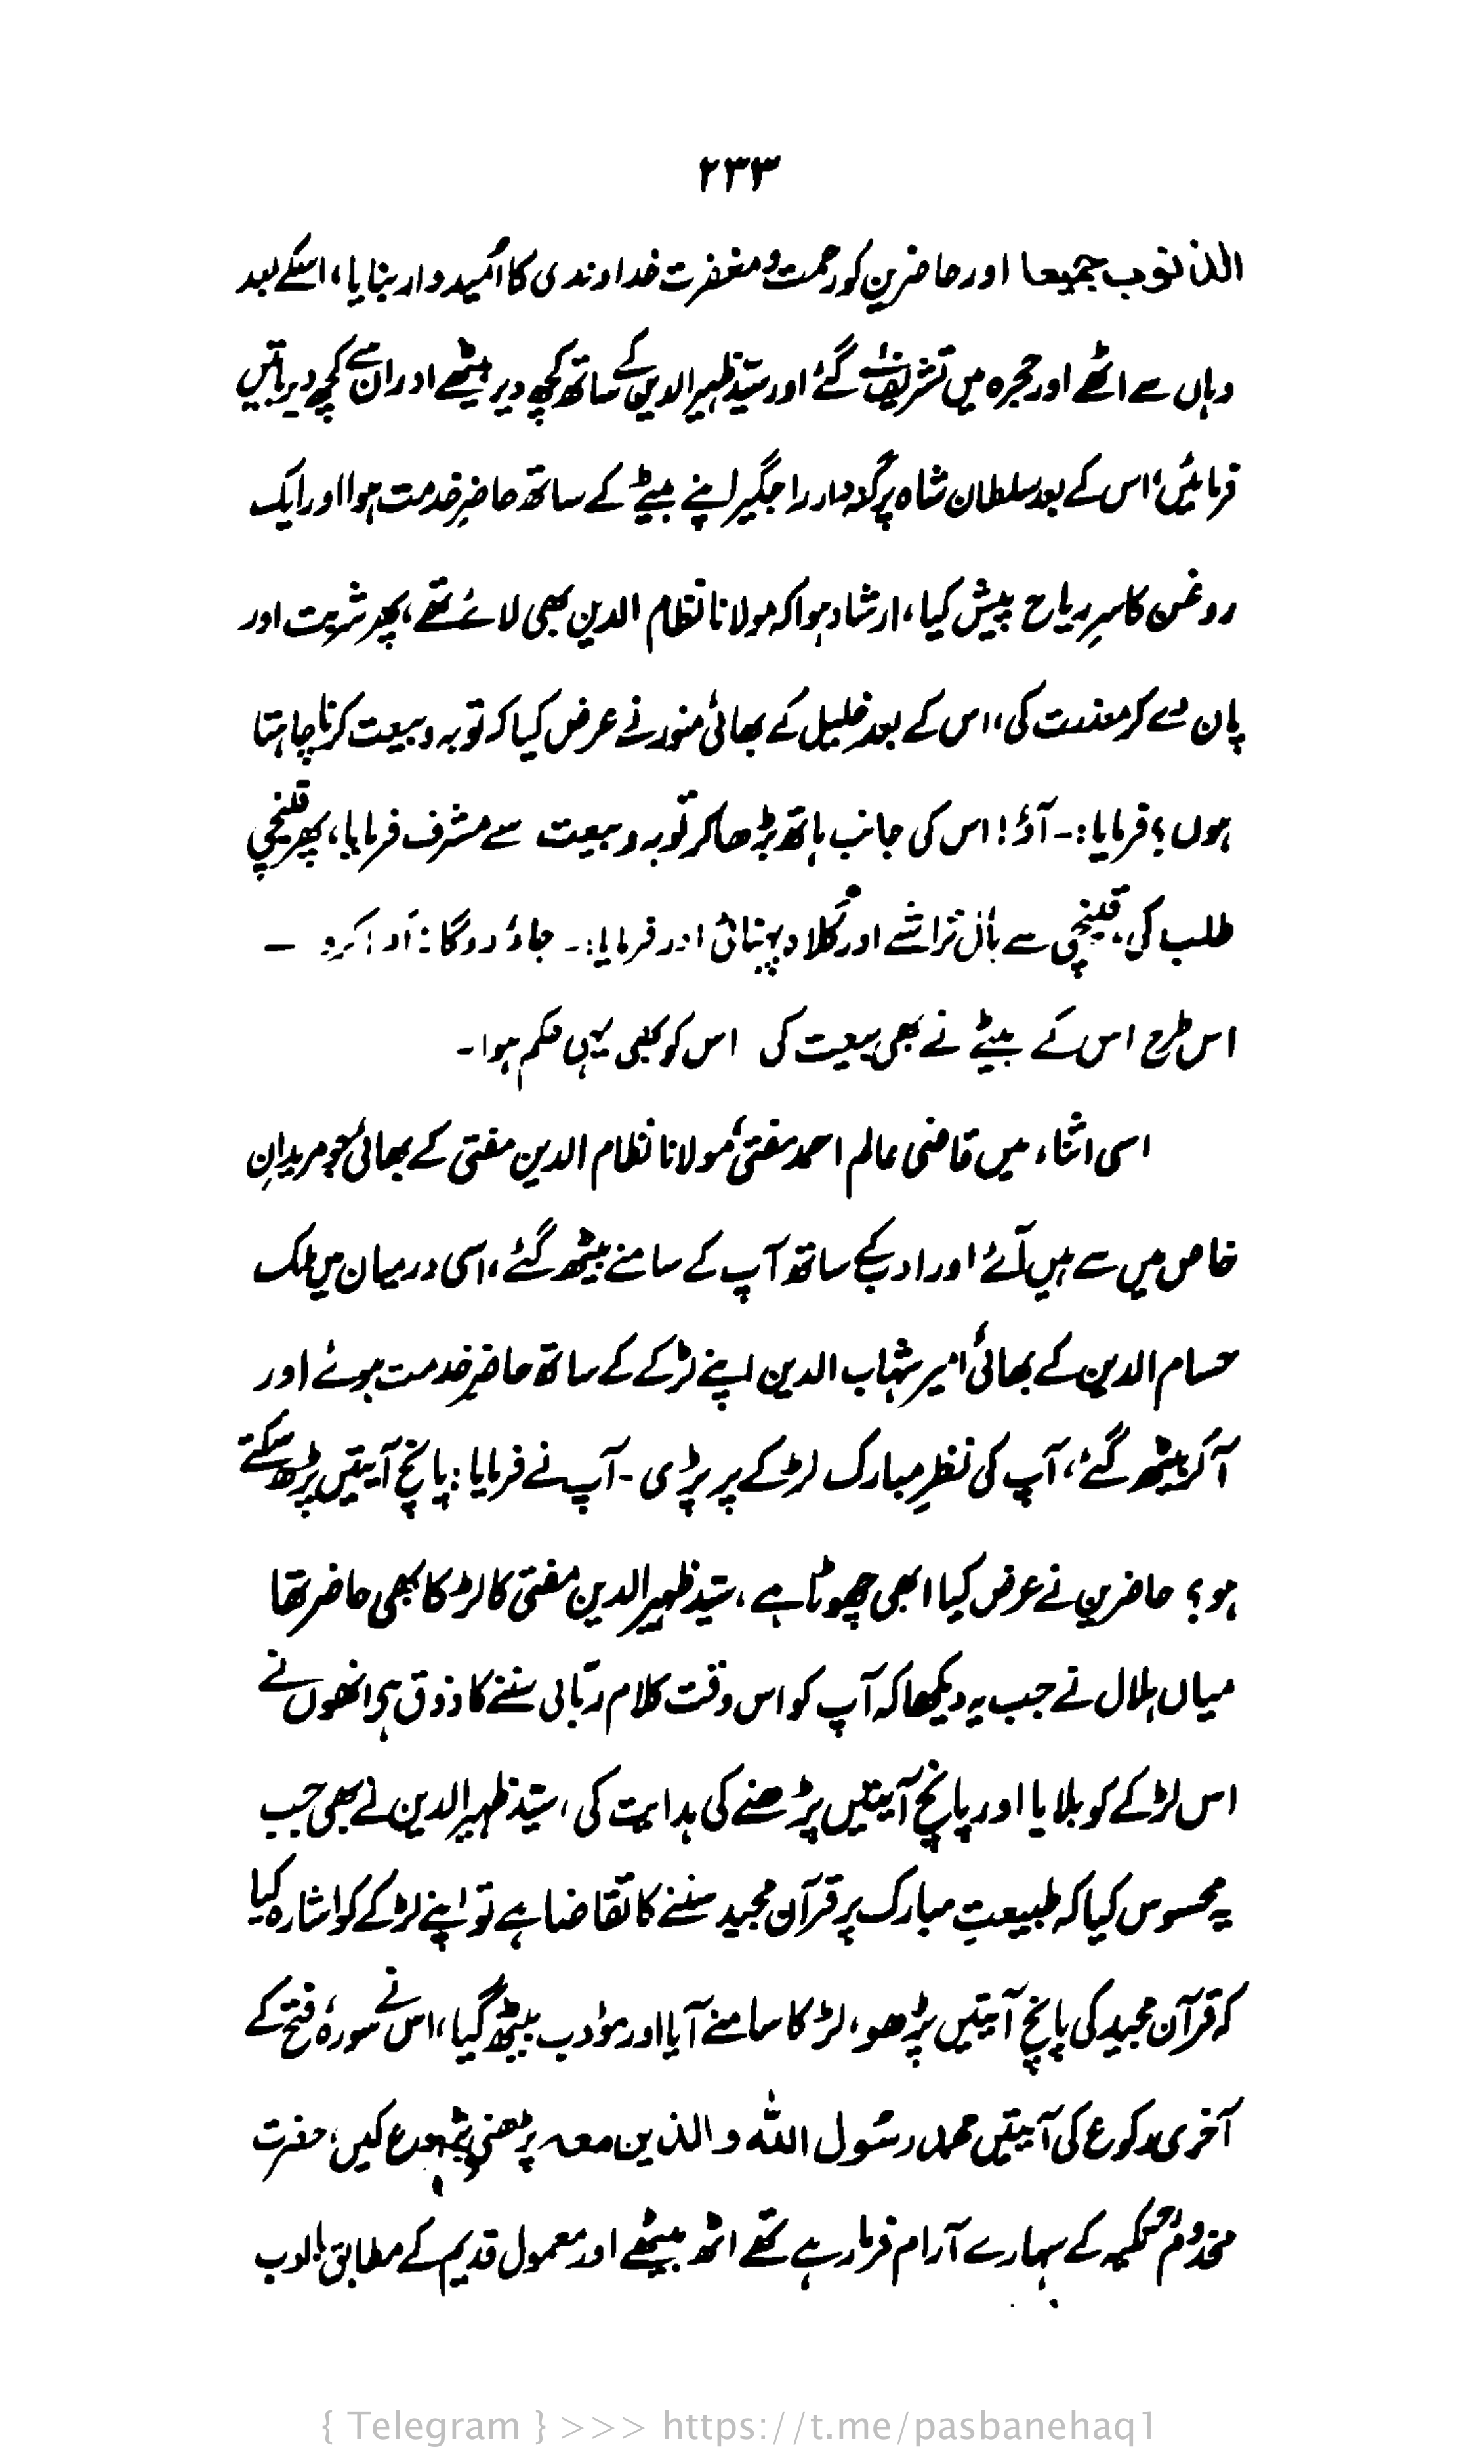 ۲۳۳
الذنوب جمیعا اور حاضرین کو رحمت و مغفرت خداوندی کا اُمیدوار بنایا، اسکے بعد
وہاں سے اٹھے اور حجرہ میں تشریف لے گئے اور سیّد ظہیر الدین کے ساتھ کچھ دیر بیٹھے اور ان سے کچھ دیر باتیں
فرمائیں، اس کے بعد سلطان شاہ پرگنہ دار راجگیر اپنے بیٹے کے ساتھ حاضرِ خدمت ہوا اور ایک
روغن کا سرِ ریاح پیش کیا، ارشاد ہوا کہ مولانا نظام الدین بھی لائے تھے، پھر شربت اور
پان دے کر معذرت کی، اس کے بعد خلیل کے بھائی منور نے عرض کیا کہ توبہ و بیعت کرنا چاہتا
ہوں؟ فرمایا:۔ آؤ! اس کی جانب ہاتھ بڑھا کر توبہ و بیعت سے مشرف فرمایا، پھر قینچی
طلب کی قینچی سے بال تراشے اور کلاہ پہنائی اور فرمایا:۔ جاؤ دوگانہ ادا کرو ۔
اس طرح اس کے بیٹے نے بھی بیعت کی اس کو بھی یہی حکم ہوا۔
اسی اثناء میں قاضی عالم احمد مفتی، مولانا نظام الدین مفتی کے بھائی جو مریدانِ
خاص میں سے ہیں آئے اور ادب کے ساتھ آپ کے سامنے بیٹھ گئے، اسی درمیان میں ملک
حسام الدین کے بھائی امیر شہاب الدین اپنے لڑکے کے ساتھ حاضرِ خدمت ہوئے اور
آکر بیٹھ گئے، آپ کی نظرِ مبارک لڑکے پر پڑی ۔ آپ نے فرمایا: پانچ آیتیں پڑھ سکتے
ہو؟ حاضرین نے عرض کیا ابھی چھوٹا ہے، سیّد ظہیر الدین مفتی کا لڑکا بھی حاضر تھا
میاں ہلال نے جب یہ دیکھا کہ آپ کو اس وقت کلام ربّانی سننے کا ذوق ہے انھوں نے
اس لڑکے کو بلایا اور پانچ آیتیں پڑھنے کی ہدایت کی، سیّد ظہیر الدین نے بھی جب
یہ محسوس کیا کہ طبیعتِ مبارک پر قرآن مجید سننے کا تقاضا ہے تو اپنے لڑکے کو اشارہ کیا
کہ قرآن مجید کی پانچ آیتیں پڑھو، لڑکا سامنے آیا اور مؤدب بیٹھ گیا، اس نے سورۂ فتح کے
آخری رکوع کی آیتیں محمد رسول اللہ والذین معہ پڑھنی شروع کیں، حضرت
مخدومؒ تکیہ کے سہارے آرام فرما رہے تھے اٹھ بیٹھے اور معمول قدیم کے مطابق با ادب
{ Telegram } >>> https://t.me/pasbanehaq1